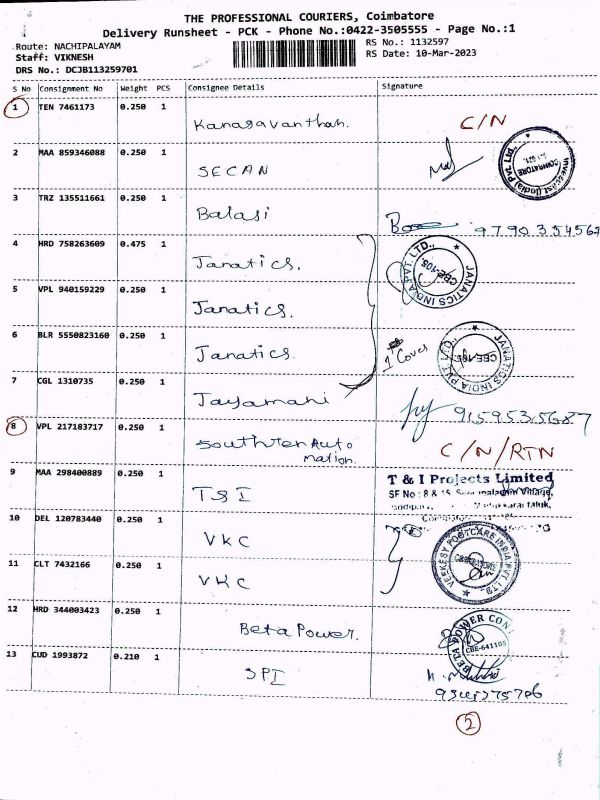 THE PROFESSIONAL COURIERS, Coimbatore
Delivery Runsheet - PCK - Phone No.:0422-3505555 - Page No.:1
Route: NACHIPALAYAM
RS No.: 1132597
Staff: VIKNESH
RS Date: 10-Mar-2023
DRS No.: DCJB113259701
S No Consignment No Weight PCS Consignee Details Signature
1 TEN 7461173 0.250 1 Kanagavanthan. C/N
2 MAA 859346088 0.250 1 SECAN
3 TRZ 135511661 0.250 1 Balasi 9790354567
4 HRD 758263609 0.475 1 Janatics.
JANATICS INDIA PVT. LTD., CBE-105.
5 VPL 940159229 0.250 1 Janatics.
6 BLR 5550823160 0.250 1 Janatics 1 Cover
JANATICS INDIA PVT LTD., CBE-105
7 CGL 1310735 0.250 1 Jayamani 9159535687
8 VPL 217183717 0.250 1 Southern Auto
mation. C/N/RTN
9 MAA 298400889 0.250 1 T&I
T & I Projects Limited
SF No : 8 & 15 Village,
taluk,
10 DEL 120783440 0.250 1 VKC
11 CLT 7432166 0.250 1 VKC
VEEKESY FOOTCARE INDIA PVT LTD COIMBATORE
12 HRD 344003423 0.250 1 Beta Power.
BETA POWER CON CBE-641105
13 CUD 1993872 0.210 1 SPI
2